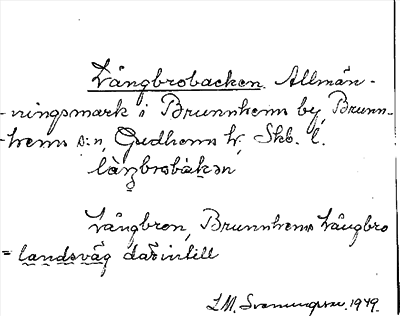 Långbrobacken. Allmän-
-ningsmark i Brunnhems by, Brunn-
-hems s:n, Gudhems hd. Skb. l.
låŋbrobàkən
Långbron, Brunnhems Långbro
= landsväg därintill
L M. Svanungsson. 1949.